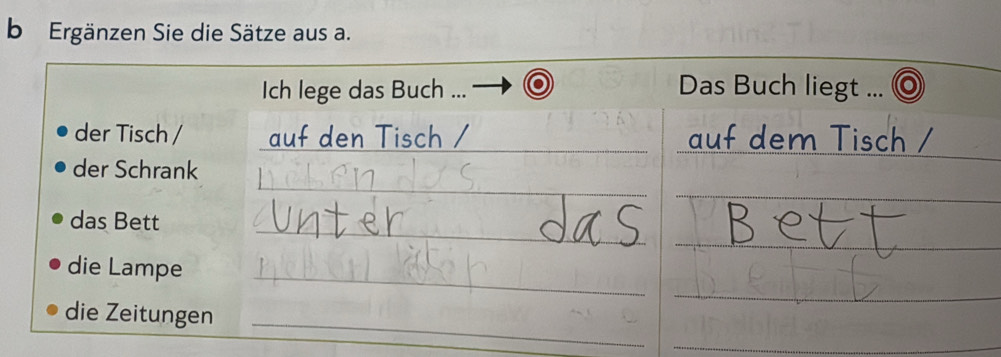 b Ergänzen Sie die Sätze aus a.
Ich lege das Buch ... Das Buch liegt ...
der Tisch / auf den Tisch / auf dem Tisch /
der Schrank neben das
das Bett unter das Bett
die Lampe neben
die Zeitungen